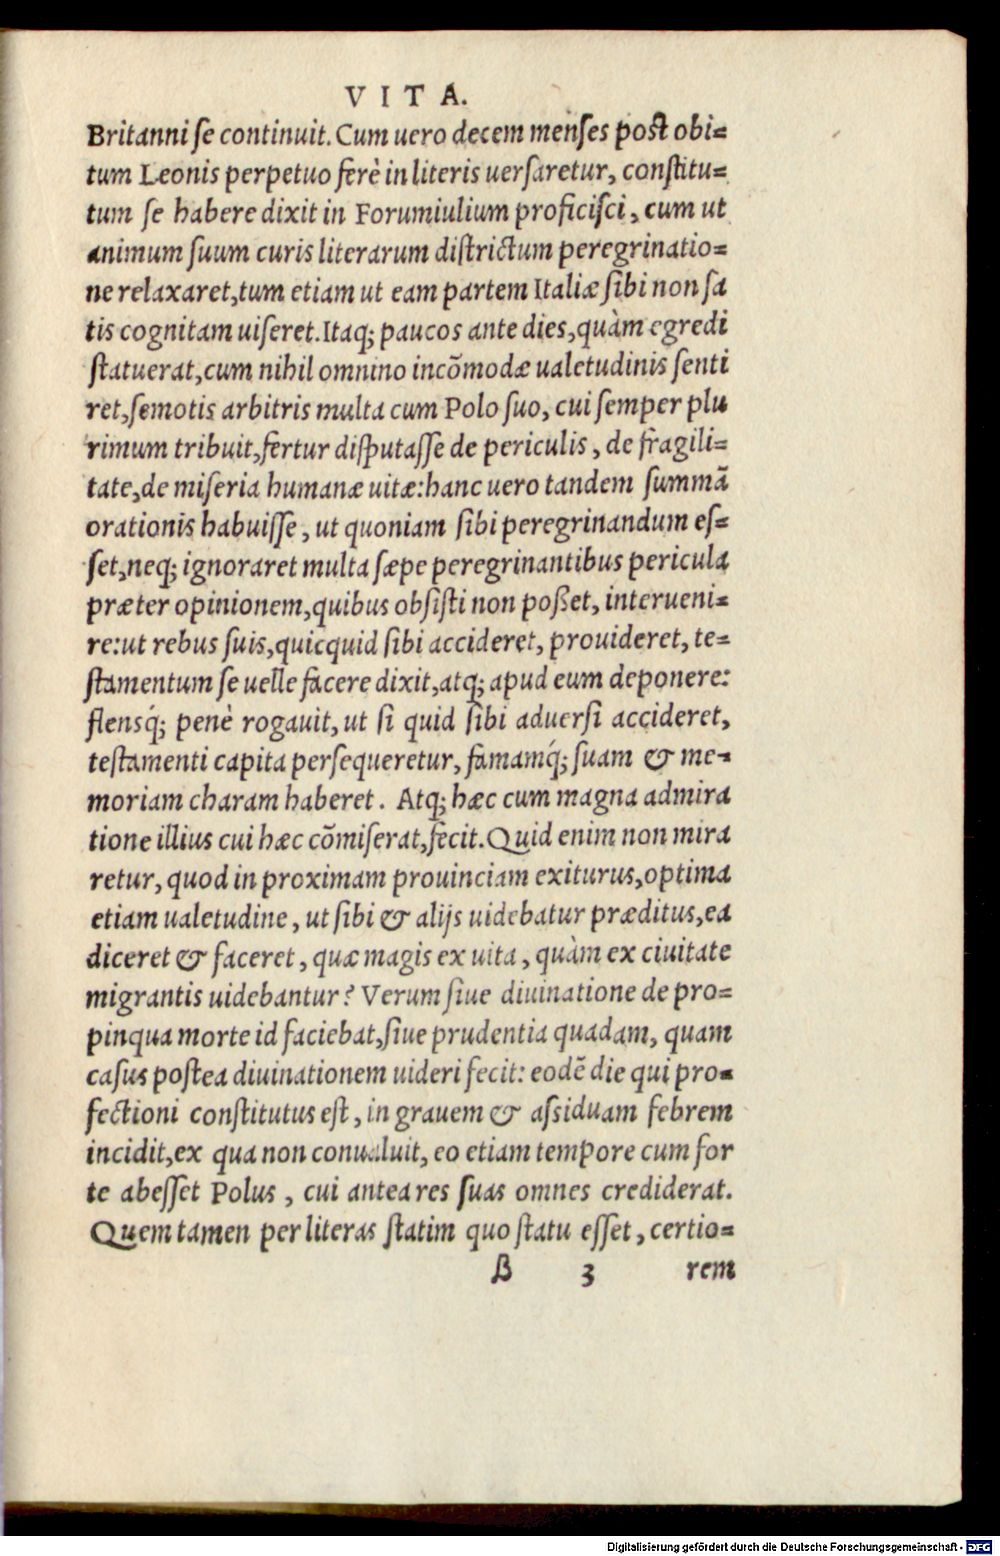 VITA.
Britanni ſe continuit. Cum uero decem menſes poſt obi=
tum Leonis perpetuo ferè in literis uerſaretur, conſtitu=
tum ſe habere dixit in Forumiulium proficiſci, cum ut
animum ſuum curis literarum diſtrictum peregrinatio=
ne relaxaret, tum etiam ut eam partem Italiæ ſibi non ſa
tis cognitam uiſeret. Itaq; paucos ante dies, quàm egredi
ſtatuerat, cum nihil omnino incõmodæ ualetudinis ſenti
ret, ſemotis arbitris multa cum Polo ſuo, cui ſemper plu
rimum tribuit, fertur diſputaſſe de periculis, de fragili=
tate, de miſeria humanæ uitæ: hanc uero tandem ſummã
orationis habuiſſe, ut quoniam ſibi peregrinandum eſ=
ſet, neq; ignoraret multa ſæpe peregrinantibus pericula
præter opinionem, quibus obſiſti non poßet, interueni=
re: ut rebus ſuis, quicquid ſibi accideret, prouideret, te=
ſtamentum ſe uelle facere dixit, atq; apud eum deponere:
flensq́; penè rogauit, ut ſi quid ſibi aduerſi accideret,
teſtamenti capita perſequeretur, famamq́; ſuam & me=
moriam charam haberet. Atq; hæc cum magna admira
tione illius cui hæc cõmiſerat, fecit. Quid enim non mira
retur, quod in proximam prouinciam exiturus, optima
etiam ualetudine, ut ſibi & alijs uidebatur præditus, ea
diceret & faceret, quæ magis ex uita, quàm ex ciuitate
migrantis uidebantur? Verum ſiue diuinatione de pro=
pinqua morte id faciebat, ſiue prudentia quadam, quam
caſus poſtea diuinationem uideri fecit: eodẽ die qui pro=
fectioni conſtitutus eſt, in grauem & aſsiduam febrem
incidit, ex qua non conualuit, eo etiam tempore cum for
te abeſſet Polus, cui antea res ſuas omnes crediderat.
Quem tamen per literas ſtatim quo ſtatu eſſet, certio=
B 3 rem
Digitalisierung gefördert durch die Deutsche Forschungsgemeinschaft - DFG